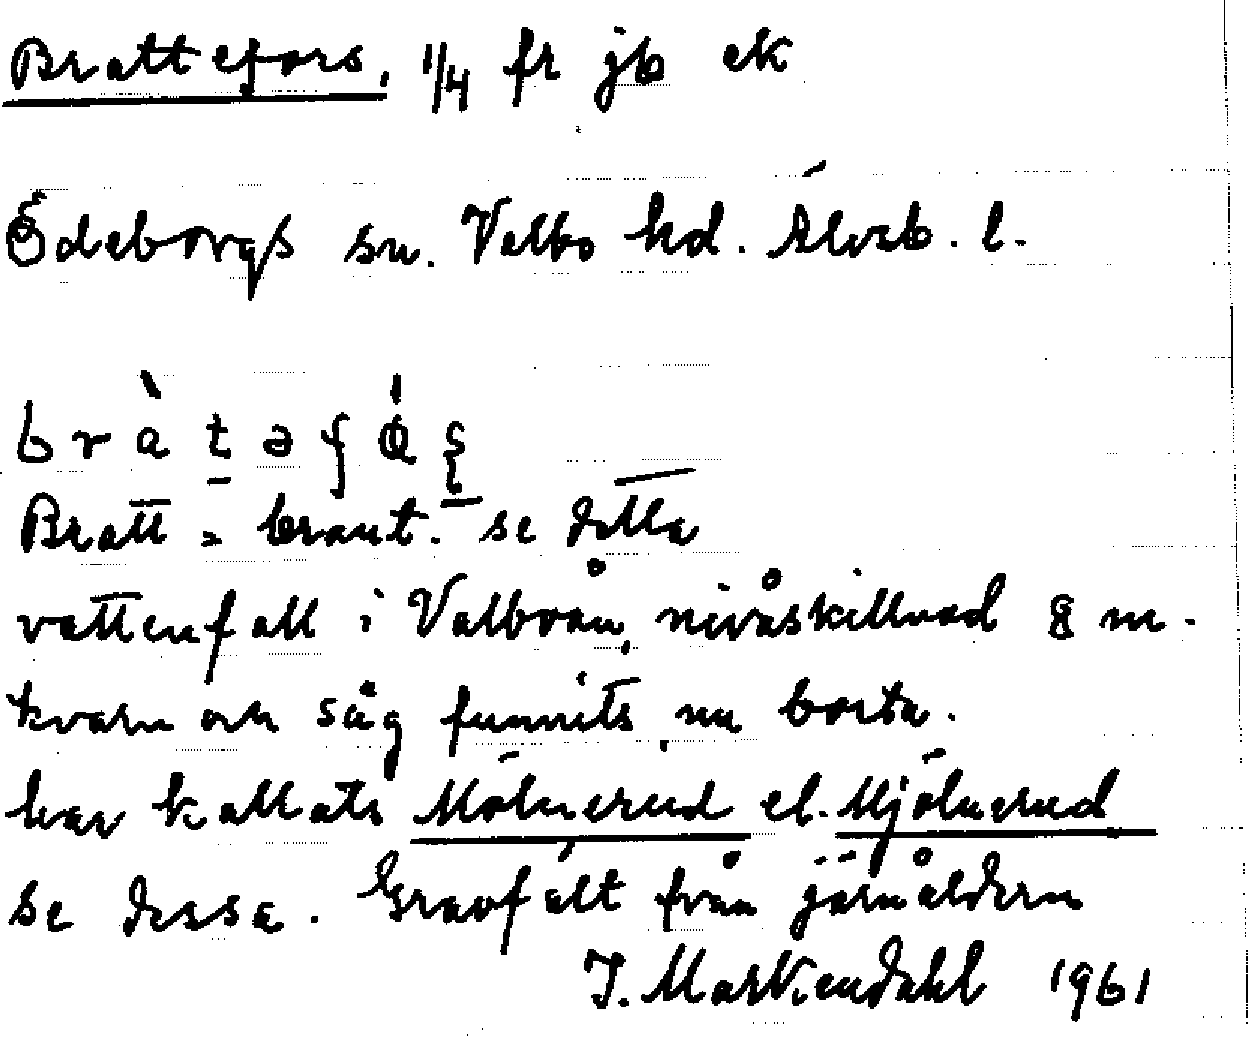 Brattefors, 1/4 fr jb ek
Ödeborgs sn. Valbo hd. Älvsb. l.
bràtəfǿʂ
Bratt = brant. se detta
vattenfall i Valboån, nivåskillnad 8 m.
kvarn och såg funnits, nu borta.
har kallats Mölnerud el. Mjölnerud
se dessa. Gravfält från järnåldern
J. Markendahl 1961